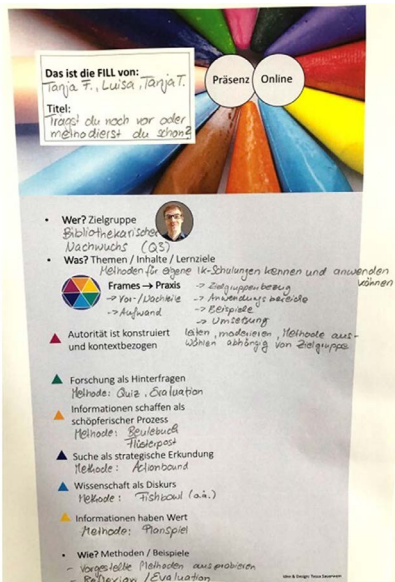 Das ist die FILL von:
Tanja F., Luisa, Tanja T.
Titel:
Trägst du noch vor oder
methodierst du schon?
Präsenz
Online
• Wer? Zielgruppe
Bibliothekarischer
Nachwuchs (QS)
• Was? Themen / Inhalte / Lernziele
Methoden für eigene Ik-Schulungen kennen und anwenden
können
Frames → Praxis
-> Vor-/Nachteile
-> Aufwand
-> Zielgruppenbezug
-> Anwendungsbereiche
-> Beispiele
-> Umsetzung
Autorität ist konstruiert
und kontextbezogen
leiten, moderieren, Methode aus-
wählen abhängig von Zielgruppe
Forschung als Hinterfragen
Methode: Quiz, Evaluation
Informationen schaffen als
schöpferischer Prozess
Methode:
Flüsterpost
Suche als strategische Erkundung
Methode: Actionbound
Wissenschaft als Diskurs
Methode: Fishbowl
Informationen haben Wert
Methode: Planspiel
• Wie? Methoden / Beispiele
- Vorgestellte Methoden ausprobieren
- Reflexion / Evaluation
Idee & Design: Timea Sauerwein